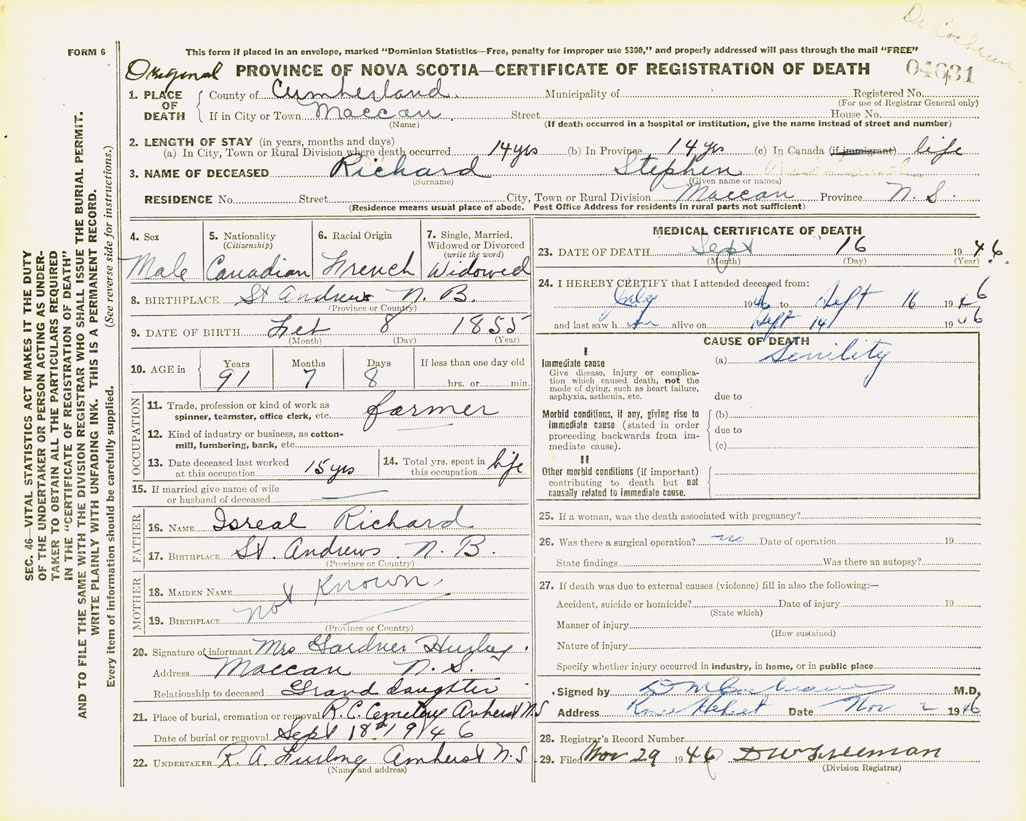 FORM 6
This form if placed in an envelope, marked "Dominion Statistics—Free, penalty for improper use $300," and properly addressed will pass through the mail "FREE"
Dr Cochran
Original PROVINCE OF NOVA SCOTIA—CERTIFICATE OF REGISTRATION OF DEATH 04631
1. PLACE OF DEATH
County of Cumberland Municipality of Registered No.
(For use of Registrar General only)
If in City or Town Maccan Street House No.
(Name) (If death occurred in a hospital or institution, give the name instead of street and number)
2. LENGTH OF STAY (in years, months and days)
(a) In City, Town or Rural Division where death occurred 14 yrs (b) In Province 14 yrs (c) In Canada (if immigrant) life
3. NAME OF DECEASED Richard Stephen
(Surname) (Given name or names)
RESIDENCE No. Street City, Town or Rural Division Maccan Province N. S.
(Residence means usual place of abode. Post Office Address for residents in rural parts not sufficient)
SEC. 46—VITAL STATISTICS ACT MAKES IT THE DUTY
OF THE UNDERTAKER OR PERSON ACTING AS UNDER-
TAKER TO OBTAIN ALL THE PARTICULARS REQUIRED
IN THE "CERTIFICATE OF REGISTRATION OF DEATH"
AND TO FILE THE SAME WITH THE DIVISION REGISTRAR WHO SHALL ISSUE THE BURIAL PERMIT.
WRITE PLAINLY WITH UNFADING INK. THIS IS A PERMANENT RECORD.
Every item of information should be carefully supplied. (See reverse side for instructions.)
4. Sex 5. Nationality (Citizenship) 6. Racial Origin 7. Single, Married, Widowed or Divorced (write the word)
Male Canadian French Widowed
8. BIRTHPLACE St Andrews N. B.
(Province or Country)
9. DATE OF BIRTH Feb 8 1855
(Month) (Day) (Year)
10. AGE in Years Months Days If less than one day old
91 7 8 hrs. or min.
OCCUPATION
11. Trade, profession or kind of work as
spinner, teamster, office clerk, etc. farmer
12. Kind of industry or business, as cotton-
mill, lumbering, bank, etc.
13. Date deceased last worked at this occupation 15 yrs
14. Total yrs. spent in this occupation life
15. If married give name of wife
or husband of deceased
FATHER
16. NAME Isreal Richard
17. BIRTHPLACE St. Andrews N. B.
(Province or Country)
MOTHER
18. MAIDEN NAME not Known
19. BIRTHPLACE
(Province or Country)
20. Signature of informant Mrs Gardner
Address Maccan N. S.
Relationship to deceased Grand daughter
21. Place of burial, cremation or removal R. C. Cemetery Amherst N S
Date of burial or removal Sept 18th 1946
22. UNDERTAKER R. A. Furlong Amherst N. S
(Name and address)
MEDICAL CERTIFICATE OF DEATH
23. DATE OF DEATH Sept 16 1946.
(Month) (Day) (Year)
24. I HEREBY CERTIFY that I attended deceased from:
July 1946 to Sept 16 1946
and last saw h alive on Sept 14 1946
CAUSE OF DEATH
I
Immediate cause (a) Senility
Give disease, injury or complica-
tion which caused death, not the
mode of dying, such as heart failure,
asphyxia, asthenia, etc. due to
Morbid conditions, if any, giving rise to (b)
immediate cause (stated in order due to
proceeding backwards from im- (c)
mediate cause).
II
Other morbid conditions (if important)
contributing to death but not
causally related to immediate cause.
25. If a woman, was the death associated with pregnancy?
26. Was there a surgical operation? no Date of operation 19
State findings Was there an autopsy?
27. If death was due to external causes (violence) fill in also the following:—
Accident, suicide or homicide? Date of injury 19
(State which)
Manner of injury
(How sustained)
Nature of injury
Specify whether injury occurred in industry, in home, or in public place
Signed by D M Cochrane M.D.
Address River Hebert Date Nov 2 1946
28. Registrar's Record Number
29. Filed Nov 29 1946 D W Freeman
(Division Registrar)